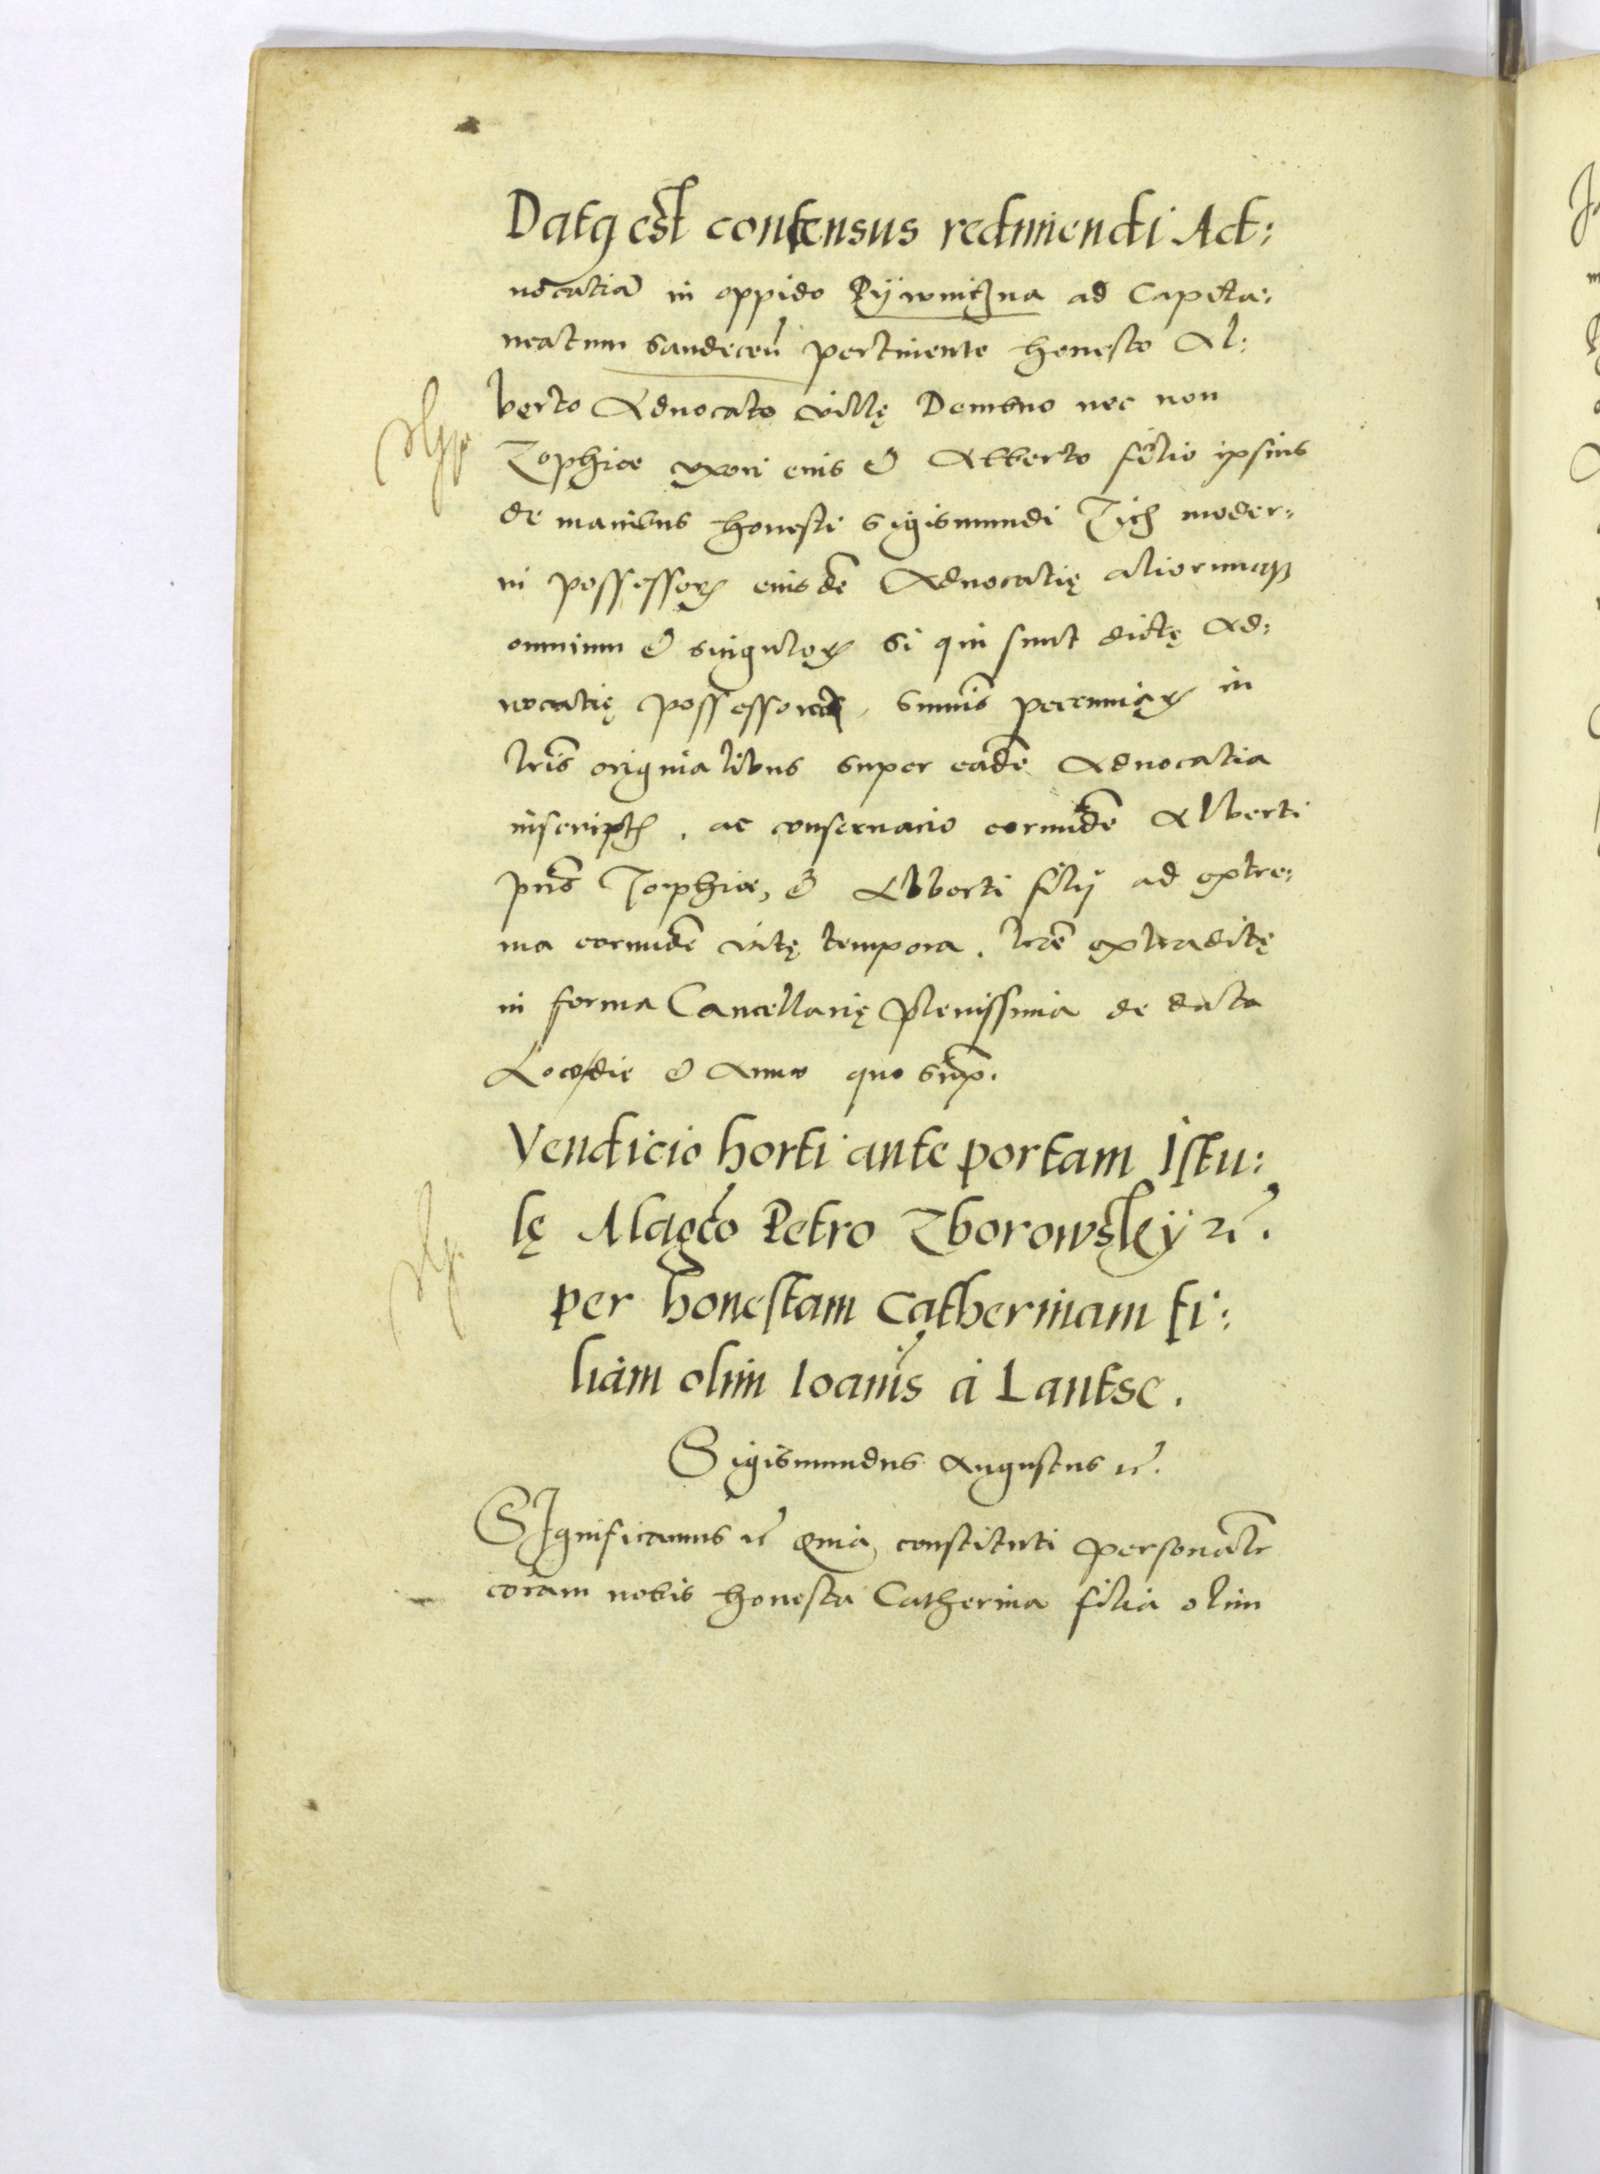 Datꝰ est consensus redimendi Ad:
uocatiā in oppido Pÿwnitzna ad Capita:
neatum Sandeceñ pertinente honesto Al:
berto Aduocato villę Dombno nec non
Zophiae uxori eius & Alberto filio ipsius
de manibus honesti Sigismundi Tich moder:
ni possessorꝭ eiusdē Aduocatię aliorumqꝫ
omnium & singulorꝝ si qui sunt dictę Ad:
uocatię possessores, summis pecuniarꝝ in
lrīs originalibus super eadē Aduocatia
inscriptꝭ, ac conseruatio eorundē Alberti
pn̄s Zophiae, & Alberti filij ad extre:
ma eorundē vitę tempora. lrae extraditę
in forma Cancellarię plenissima de data
Loco die & Anno quo supͣ.
Vendicio horti ante portam Istu:
lę Magco Petro Zborowskÿ ꝛc̄.
per honestam Catherinam fi:
liam olim Ioānis a Lantsc.
Sigismundus Augustus ꝛc̄.
SIgnificamus ꝛc̄ Quia constituti personalr
coram nobis honesta Catherina filia olim